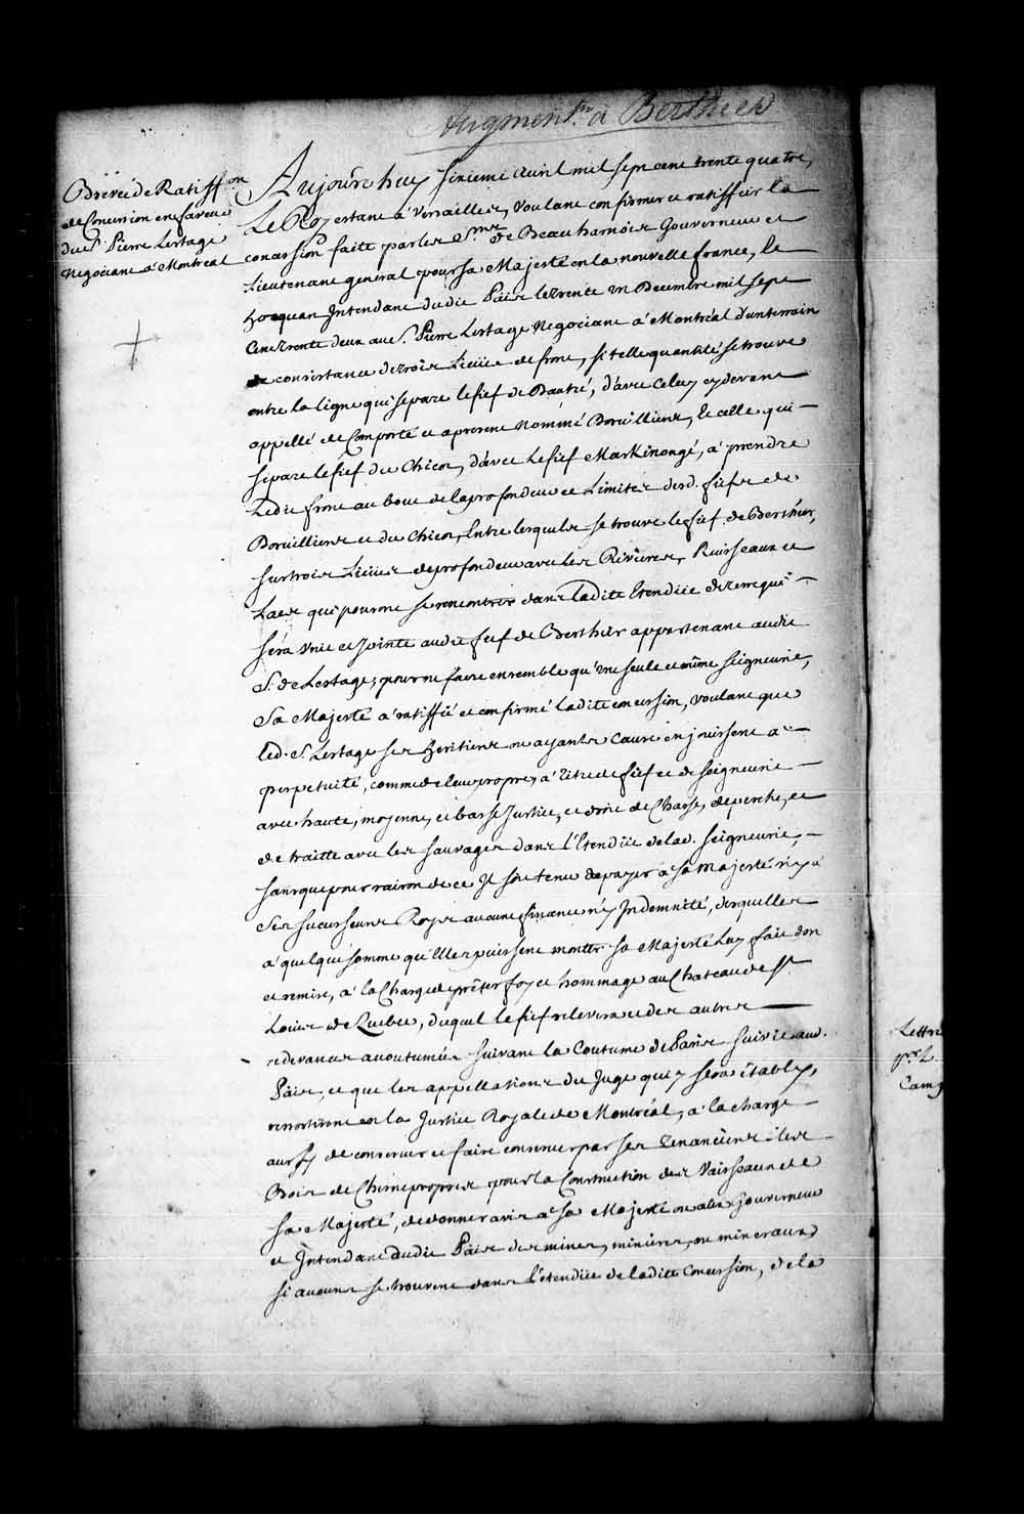 Augment.on à Berthier
Brevet de Ratiff.on
de Concession en faveur
du S.r Pierre Lestage
Negociant à Montréal
Aujourd'huy sixieme avril mil sept cent trente quatre,
Le Roy estant à Versailles, voulant confirmer et ratiffier la
concession faite par les S.rs de Beauharnois Gouverneur et
Lieutenant general pour sa Majesté en la nouvelle france, et
hocquart Intendant dudit Païs le trente un Decembre mil sept
Cent trente deux au S.r Pierre Lestage Negociant à Montréal d'un terrain
de consistance de trois Lieües de front, si telle quantité se trouve
entre la ligne qui separe le fief de Dautré, d'avec celuy cy devant
appellé de Comporté et apresent nommé Dorvilliers, et celle qui
separe le fief du Chicot, d'avec le fief Maskinongé, à prendre
Ledit front au bout de la profondeur et Limites desd. fiefs de
Dorvilliers et du Chicot, Entre lesquels se trouve le fief de Berthier,
sur trois Lieües de profondeur avec les Rivieres, Ruisseaux et
Lacs qui pourront se rencontrer dans ladite Etendüe de terre qui
séra unie et jointe audit fief de Berthier appartenant audit
S. de Lestage, pour ne faire ensemble qu'une seule et même seigneurie,
Sa Majesté a ratiffié et confirmé ladite concession, voulant que
led. S. Lestage ses heritiers ou ayants cause en jouissent a
perpetuité, comme de leur propre, à titre de fief et de seigneurie
avec haute, moyenne, et basse Justice, et droit de Chasse, de pesche, et
de traitte avec les sauvages dans l'Etendüe de lad. seigneurie,
sans que pour raison de ce Il soit tenu de payer à sa Majesté ny à
Ses successeurs Roys aucune finance n'y Indemnité, desquelles
à quelque somme qu'Elles puissent monter sa Majesté Luy fait don
et remise, à la Charge de prêter foy et hommage au Chateau de S.t
Louis de Quebec, duquel le fief relevera et des autres
redevances accoutumées suivant la Coutume de Paris suivie aud.
Païs, et que les appellations du Juge qui y sera établi,
ressortiront en la Justice Royale de Montréal, à la charge
aussy de conserver et faire conserver par ses Tenanciers les
Bois de Chêne propres pour la Construction des Vaisseaux de
sa Majesté, de donner avis à Sa Majesté ou aux Gouverneur
et Intendant dudit Païs des mines, minieres, ou mineraux
si aucuns se trouvent dans l'étendüe de ladite Concession, de la
Lettre
p.r L
Camp